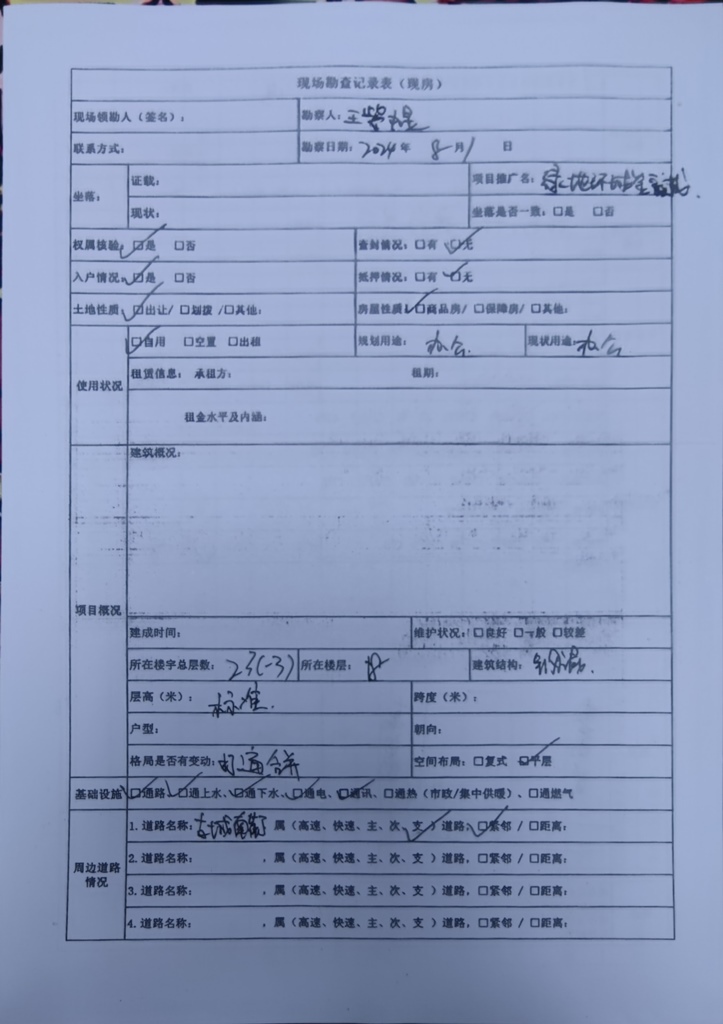 现场勘查记录表（现房）
现场领勘人（签名）： 勘察人：王
联系方式： 勘察日期：2024年 8月1日
坐落： 证载： 项目推广名：绿地环球金融城.
现状： 坐落是否一致：□是 □否
权属核验：☑是 □否 查封情况：□有 ☑无
入户情况：☑是 □否 抵押情况：□有 ☑无
土地性质：☑出让/ □划拨 /□其他： 房屋性质：☑商品房/ □保障房/ □其他：
使用状况 ☑自用 □空置 □出租 规划用途：办公. 现状用途：办公
租赁信息： 承租方： 租期：
租金水平及内涵：
项目概况 建筑概况：
建成时间： 维护状况：□良好 □一般 □较差
所在楼宇总层数：23(-3) 所在楼层： 建筑结构：
层高（米）：标准. 跨度（米）：
户型： 朝向：
格局是否有变动：打通合并 空间布局：□复式 ☑平层
基础设施 ☑通路、☑通上水、☑通下水、☑通电、☑通讯、□通热（市政/集中供暖）、□通燃气
周边道路情况 1. 道路名称：古城南街，属（高速、快速、主、次、支✓）道路，☑紧邻 / □距离：
2. 道路名称： ，属（高速、快速、主、次、支 ）道路，□紧邻 / □距离：
3. 道路名称： ，属（高速、快速、主、次、支 ）道路，□紧邻 / □距离：
4. 道路名称： ，属（高速、快速、主、次、支 ）道路，□紧邻 / □距离：